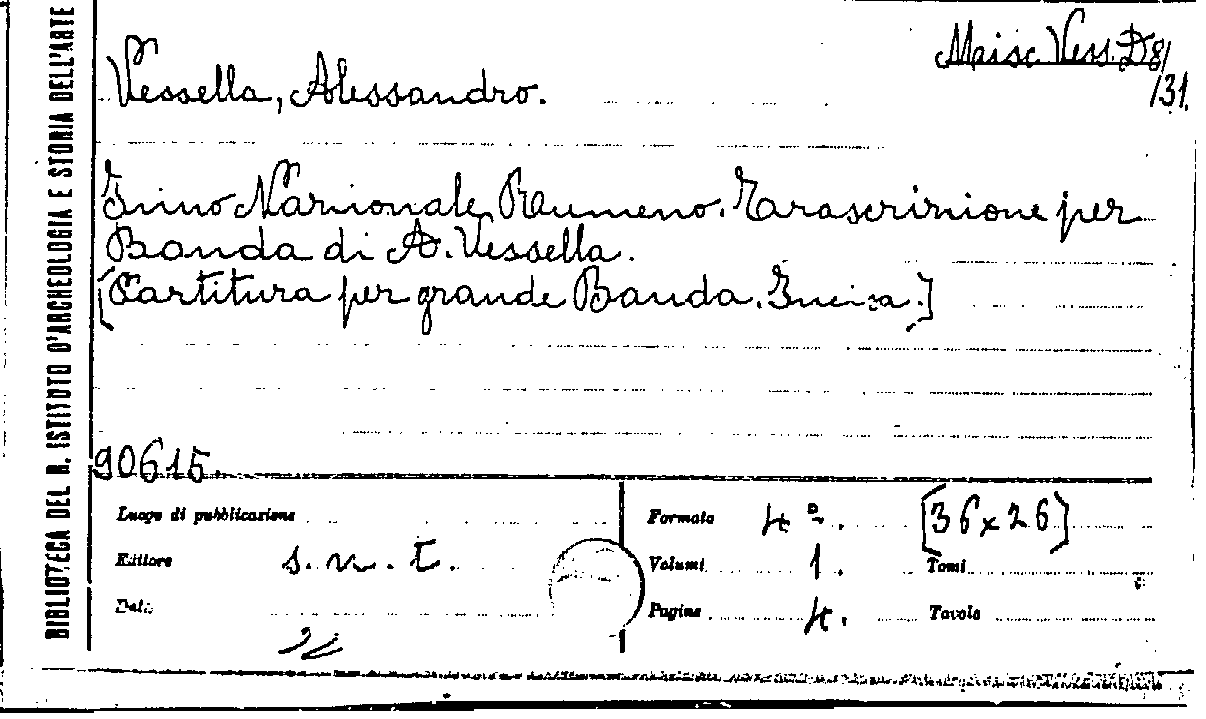 BIBLIOTECA DEL R. ISTITUTO D'ARCHEOLOGIA E STORIA DELL'ARTE
Vessella, Alessandro.
Misc. Vess. D8/
/31.
Inno Nazionale Rumeno. Trascrizione per
Banda di A. Vessella.
[Partitura per grande Banda. Incisa.]
90615.
Luogo di pubblicazione
Editore s. n. t.
Data
Formato 4º. [36x26]
Volumi 1. Tomi
Pagine 4. Tavole